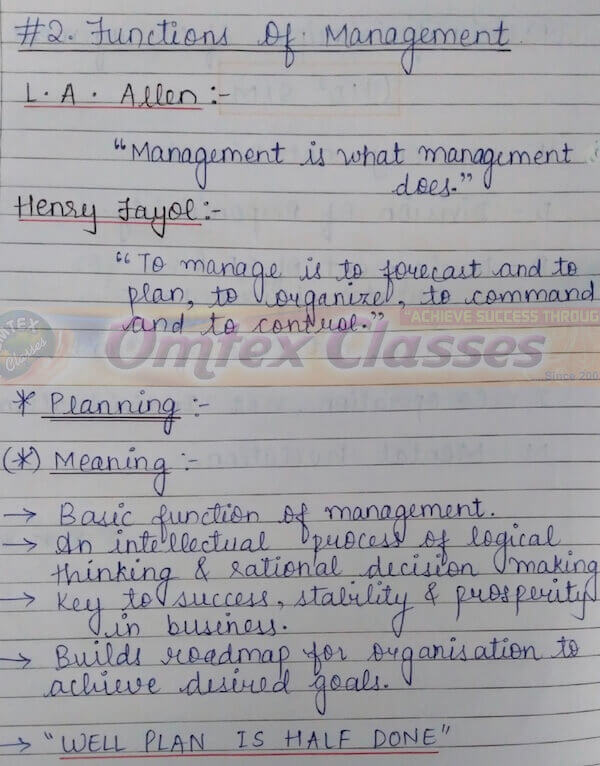 #2. Functions Of Management
L. A. Allen :-
"Management is what management
does."
Henry Fayol :-
"To manage is to forecast and to
plan, to organize, to command
and to control."
OMTEX
Classes
"ACHIEVE SUCCESS THROUG
Omtex Classes
Since 200
* Planning :-
(*) Meaning :-
→ Basic function of management.
→ An intellectual process of logical
thinking & rational decision making
→ Key to success, stability & prosperity
in business.
→ Builds roadmap for organisation to
achieve desired goals.
→ "WELL PLAN IS HALF DONE"